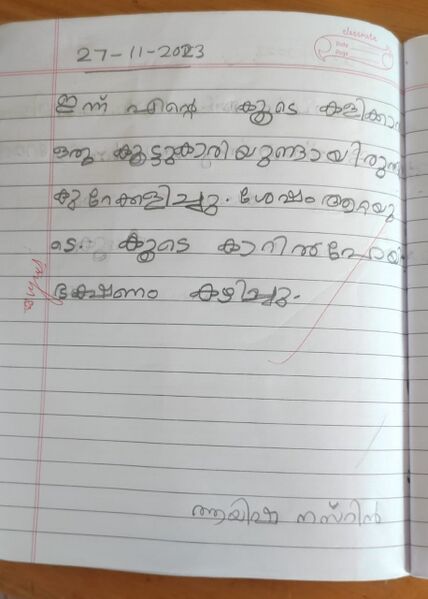 classmate
Date
Page
27-11-2023
ഇന്ന് എന്റെ കൂടെ കളിക്കാൻ
ഒരു കൂട്ടുകാരിയുണ്ടായിരുന്നു
കുറേകളിച്ചു. ശേഷം
ടെ. കൂടെ കാറിൽപോയി
ഭക്ഷണം കഴിച്ചു.
ആയിഷ നസ്റിൻ